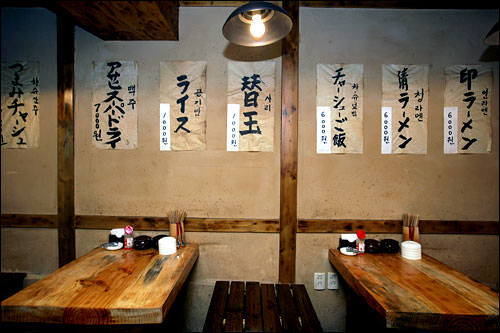 つまみチャーシュ
차슈안주
アサヒスーパードライ
맥주
7000원
ライス
공기밥
1000원
替玉
사리
1000원
チャーシューご飯
차슈덮밥
6000원
清ラーメン
청라멘
6000원
印ラーメン
인라멘
6000원